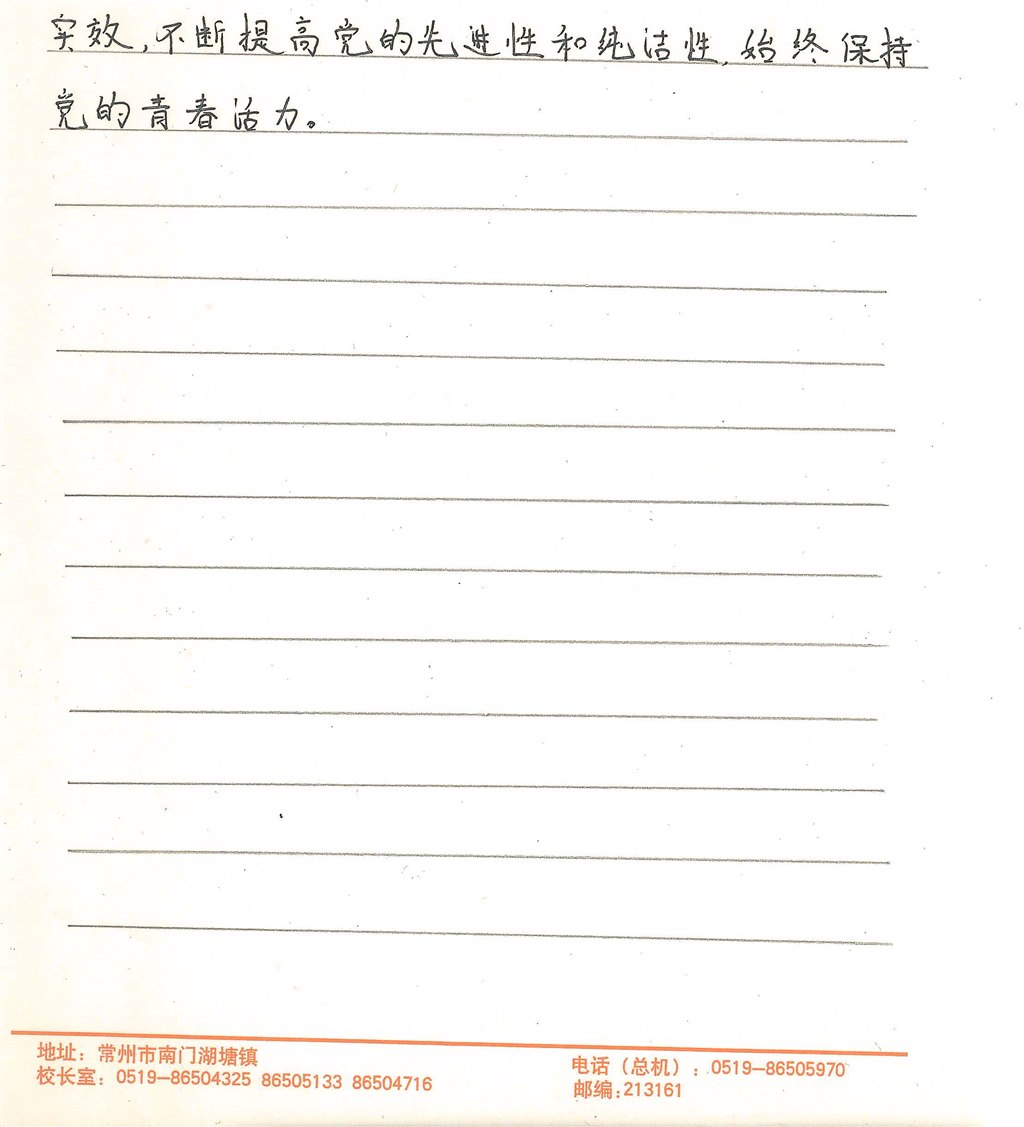 实效,不断提高党的先进性和纯洁性,始终保持
党的青春活力。
地址：常州市南门湖塘镇
校长室：0519—86504325 86505133 86504716
电话（总机）：0519—86505970
邮编:213161